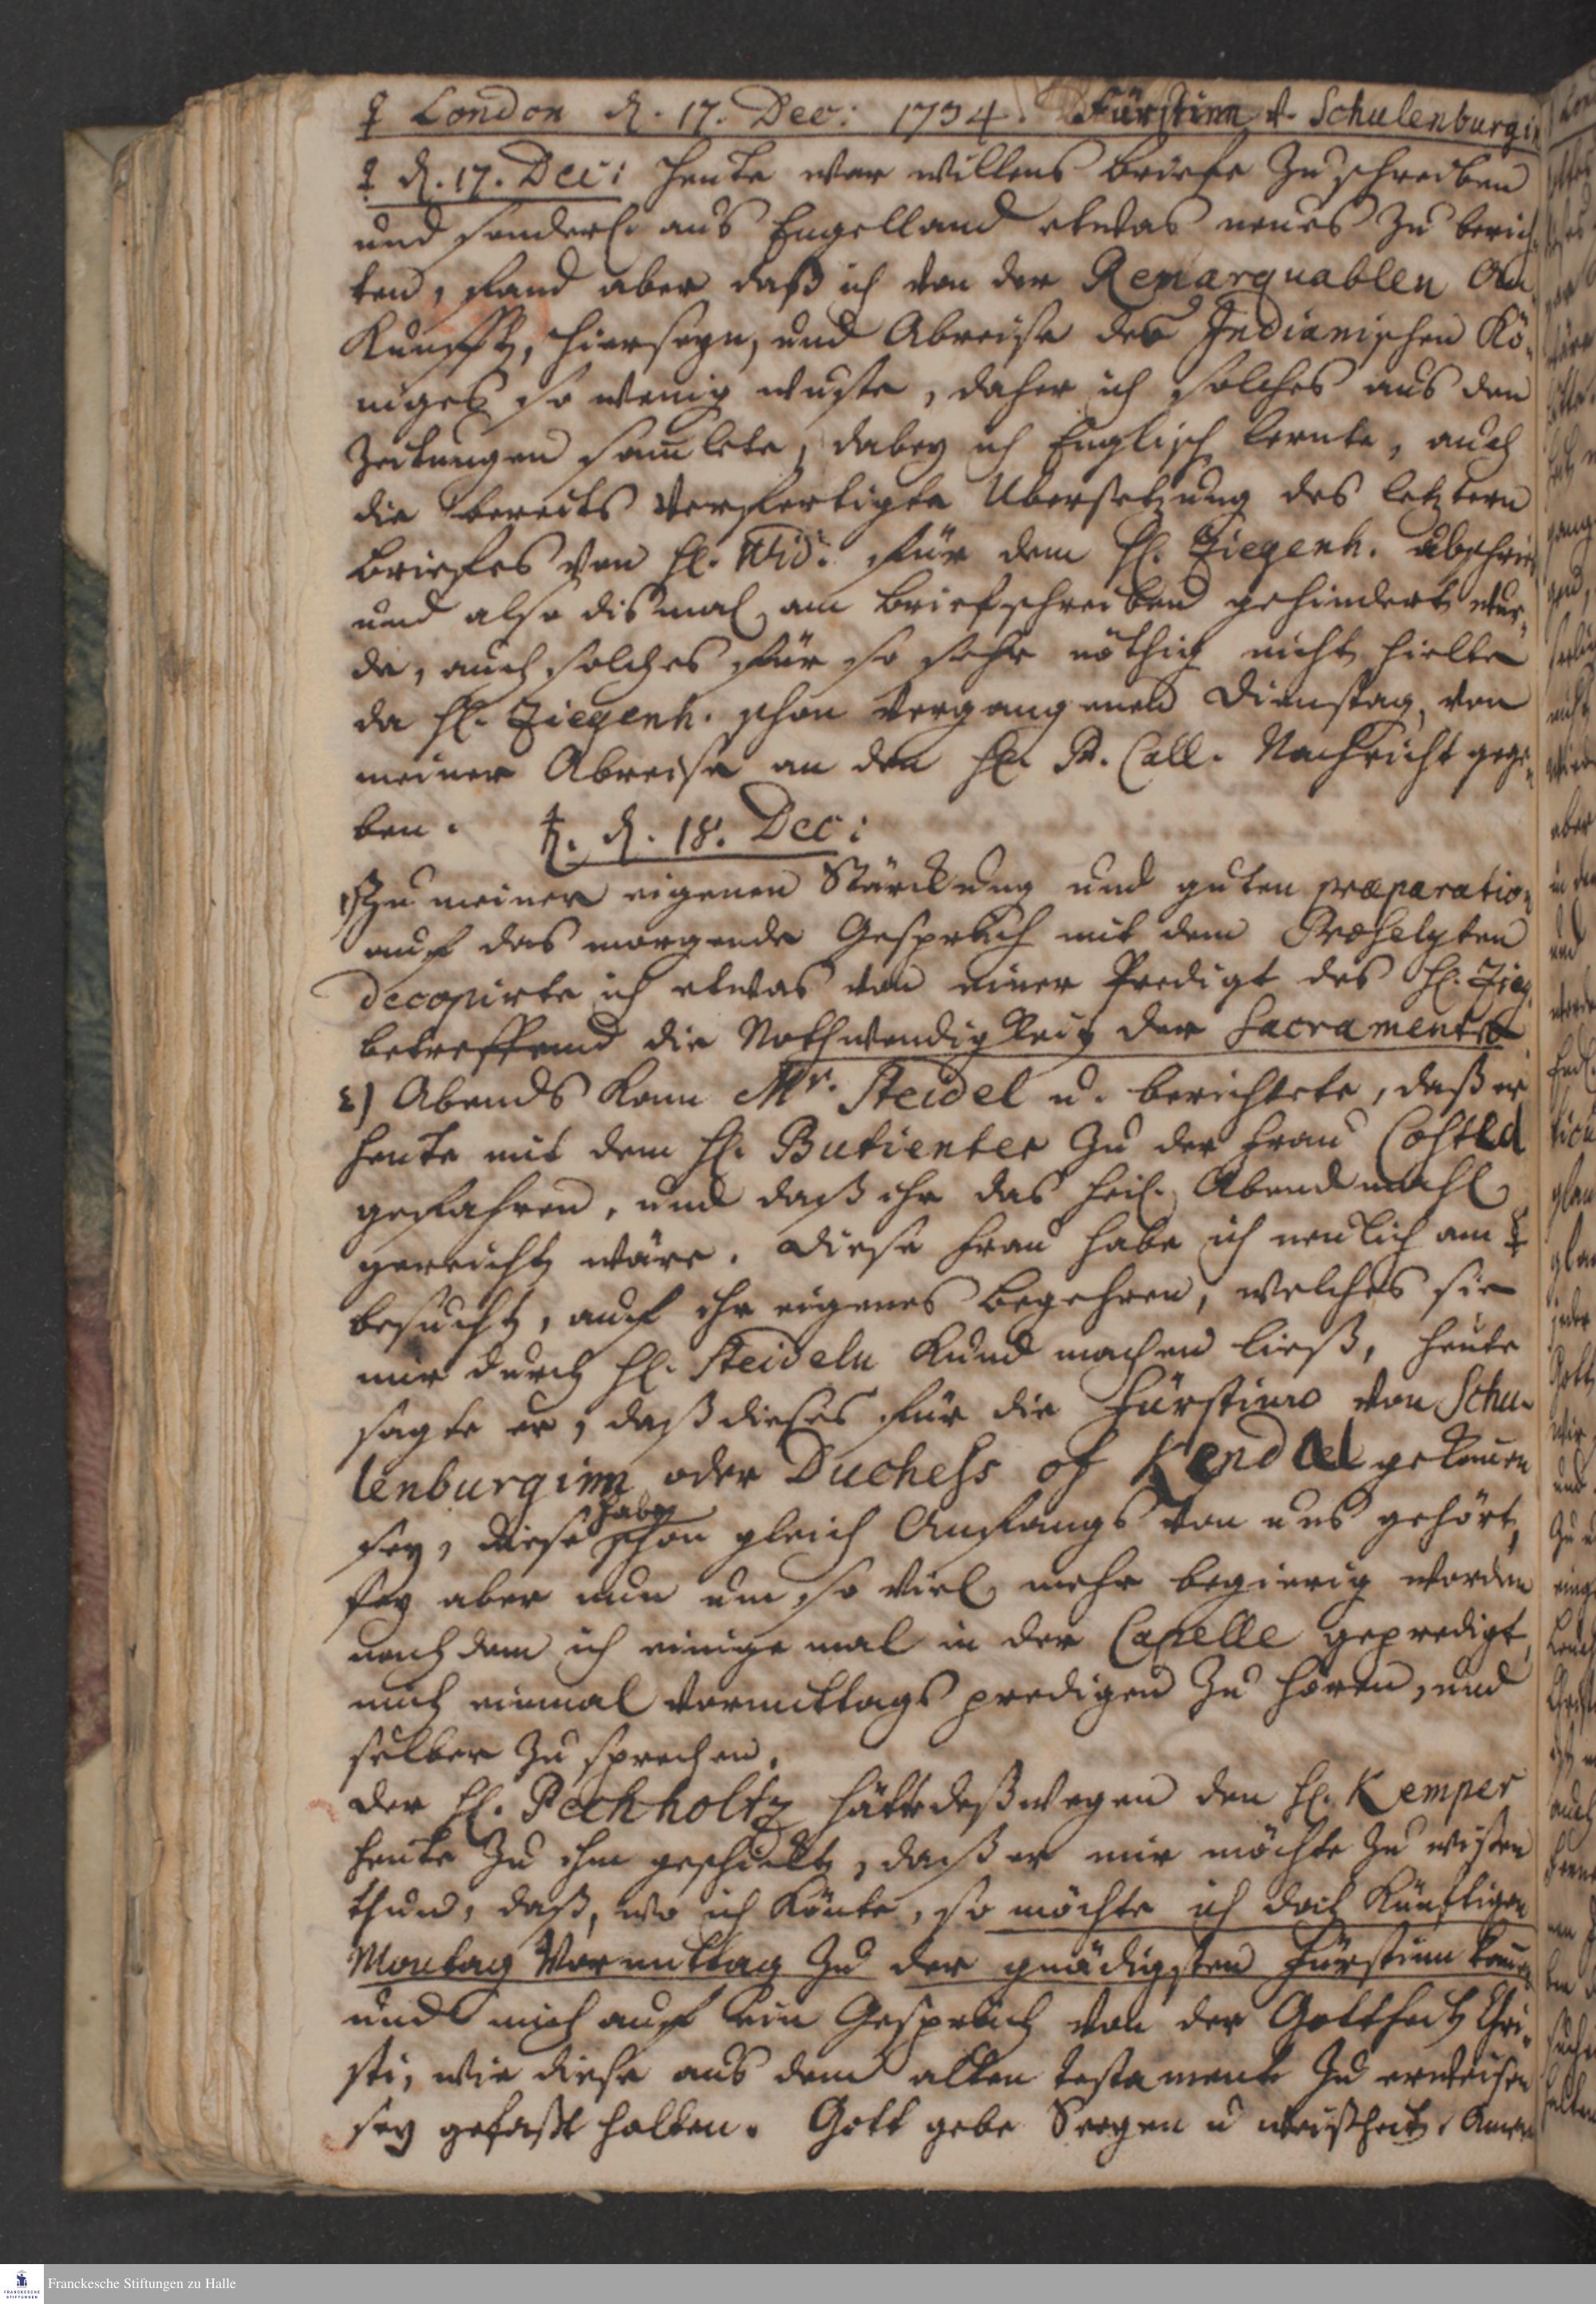 ♀ London d. 17. Dec: 1734. Fürstinn v. Schulenburgin
♀ d. 17. Dec: Heute war willens briefe zu schreiben
und sonderl. aus Engelland etwas neues zu berich-
ten, fand aber daß ich von der Remarquablen An-
kunfft, hierseyn, und Abreise des Indianischen Kö-
niges so wenig wuste, daher ich solches aus den
Zeitungen sam̅lete, dabey ich Englisch lernte, auch
die bereits verfertigte Ubersetzung des letztern
briefes von H. Wid: für dem H. Ziegenh. abschrieb
und also dismal am briefschreiben gehindert wur-
de, auch solches für so sehr nöthig nicht hielte
da H. Ziegenh. schon vergangenen Dienstag von
meiner Abreise an den H. Call. Nachricht gege-
ben. ♄. d. 18. Dec:
1) Zu meiner eigenen Stärckung und guten præparation
auf das morgende Gespräch mit dem Proselyten
decopirte ich etwas von einer Predigt des H. Zieg.
betreffend die Nothwendigkeit der Sacramente
2) Abends kam Mr. Steidel u. berichtete, daß er
heute mit dem H. Butienter zu der Frau Costed
gefahren, und daß ihr das heil. Abendmahl
gereicht wäre. Diese Frau habe ich neulich am ☿
besucht, auf ihr eigenes begehren, welches sie
mir durch H. Steideln kund machen ließ, heute
sagte er, daß dieses für die Fürstinn von Schu-
lenburginn oder Duchess of Kendal gekom̅en
sey, diese habe schon gleich Anfangs von uns gehört,
sey aber nun um so viel mehr begierig worden
nach dem ich einige mal in der Capelle gepredigt,
mich einmal vormittags predigen zu hören, und
selber zu sprechen.
Der H. Pechholtz hätte deßwegen den H. Kemper
heute zu ihm geschickt, daß er mir möchte zu wissen
thun, daß, wo ich könte, so möchte ich doch künftigen
Montag Vormittag zu der gnädigsten Fürstinn kom̅en
und mich auf ein Gespräch von der Gottheit Chri-
sti, wie diese aus dem alten Testamente zu erweisen
sey gefasst halten. Gott gebe Seegen u weisheit. Amen
Franckesche Stiftungen zu Halle